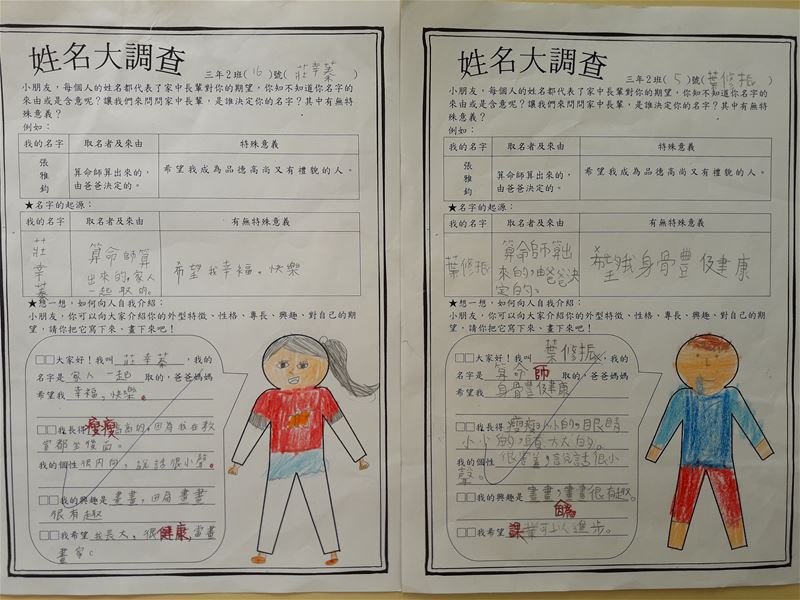 姓名大調查
三年2班(16)號(莊幸蓁)
小朋友，每個人的姓名都代表了家中長輩對你的期望，你知不知道你名字的
來由或是含意呢？讓我們來問問家中長輩，是誰決定你的名字？其中有無特
殊意義？
例如：
我的名字 取名者及來由 特殊意義
張雅鈞 算命師算出來的，由爸爸決定的。 希望我成為品德高尚又有禮貌的人。
★名字的起源：
我的名字 取名者及來由 有無特殊意義
莊幸蓁 算命師算出來的，家人一起取的。 希望我幸福。快樂
★想一想，如何向人自我介紹：
小朋友，你可以向大家介紹你的外型特徵、性格、專長、興趣、對自己的期
望，請你把它寫下來、畫下來吧！
□□大家好！我叫 莊幸蓁，我的
名字是 家人一起 取的，爸爸媽媽
希望我 幸福，快樂。
□□我長得 瘦瘦高高的，因為我在教
室都坐後面。
我的個性 很內向，說話很小聲。
□□我的興趣是 畫畫，因為畫畫
很有趣
□□我希望 我長大，很健康，當畫
畫家。
姓名大調查
三年2班(5)號(葉修振)
小朋友，每個人的姓名都代表了家中長輩對你的期望，你知不知道你名字的
來由或是含意呢？讓我們來問問家中長輩，是誰決定你的名字？其中有無特
殊意義？
例如：
我的名字 取名者及來由 特殊意義
張雅鈞 算命師算出來的，由爸爸決定的。 希望我成為品德高尚又有禮貌的人。
★名字的起源：
我的名字 取名者及來由 有無特殊意義
葉修振 算命師算出來的，由爸爸決定的。 希望我身骨豐健康
★想一想，如何向人自我介紹：
小朋友，你可以向大家介紹你的外型特徵、性格、專長、興趣、對自己的期
望，請你把它寫下來、畫下來吧！
□□大家好！我叫 葉修振，我的
名字是 算命師 取的，爸爸媽媽
希望我 身骨豐健康
□□我長得 瘦瘦小小的，眼睛
小小的，頭大大的。
我的個性 很害羞，說話很小
聲。
□□我的興趣是 畫畫，畫畫很有趣。
□□我希望 課業可以進步。